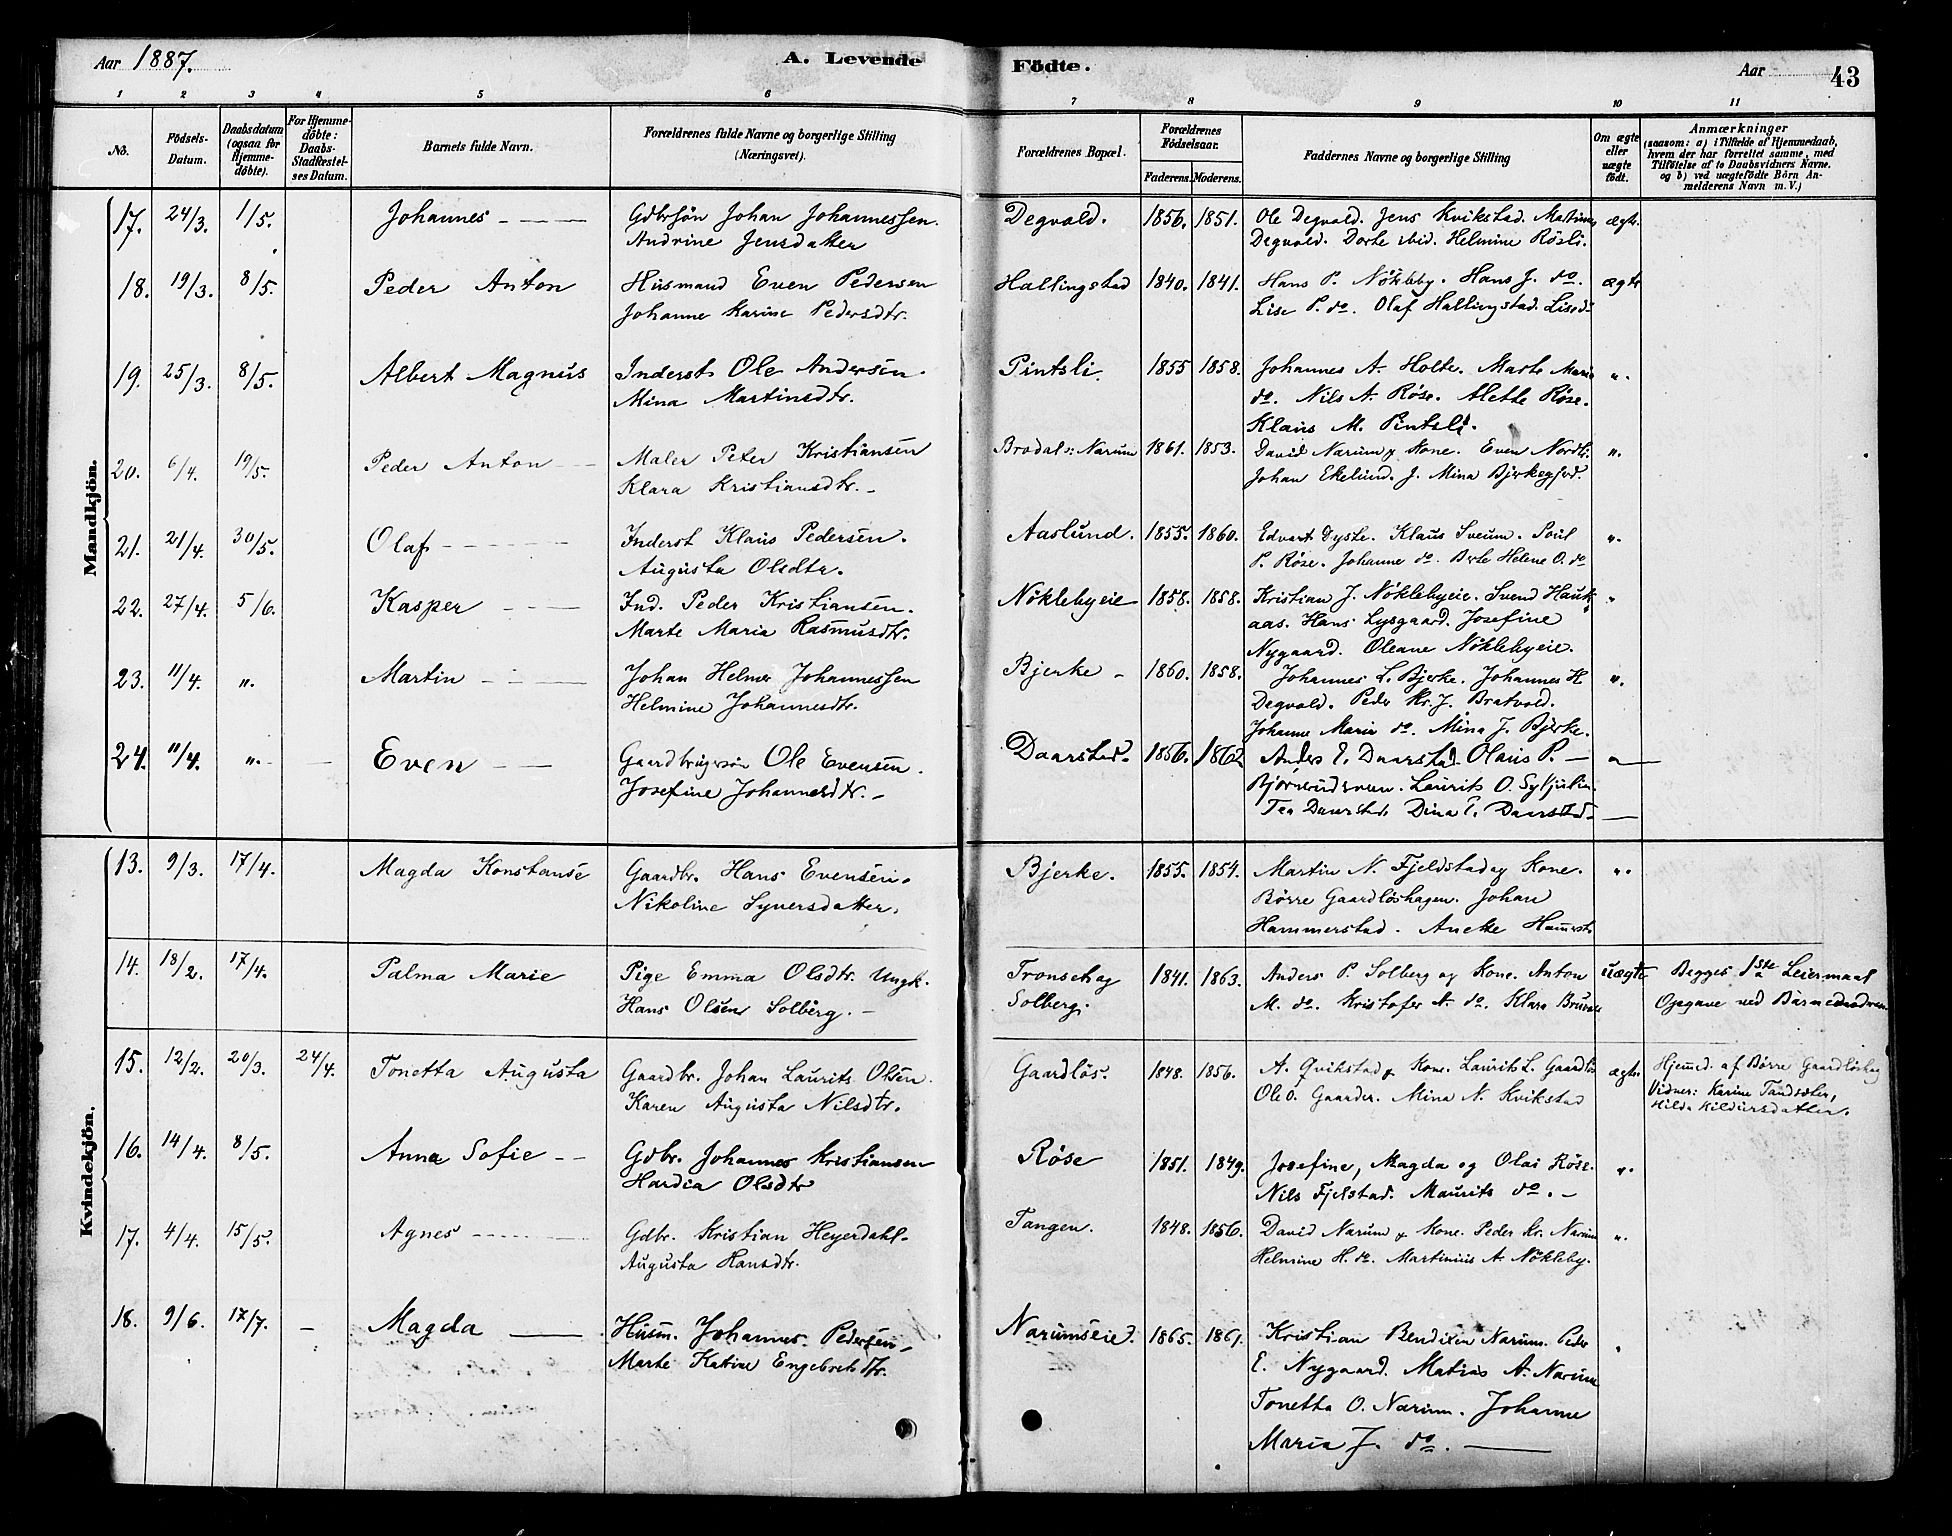 Aar 1887.
A. Levende Födte.
Aar
43
1 2 3 4 5 6 7 8 9 10 11
No.
Födsels-Datum.
Daabsdatum (ogsaa for Hjemme-döbte).
For Hjemme-döbte: Daabs-Stadfæstel-ses Datum.
Barnets fulde Navn.
Forældrenes fulde Navne og borgerlige Stilling (Næringsvei).
Forældrenes Bopæl.
Forældrenes Födselsaar.
Faderens. Moderens.
Faddernes Navne og borgerlige Stilling
Om ægte eller uægte födt.
Anmærkninger
(saasom: a) i Tilfælde af Hjemmedaab,
hvem der har forrettet samme, med
Tilföielse af to Daabsvidners Navne.
og b) ved uægtefödte Börn An-
melderens Navn m. V.)
Mandkjön.
17. 24/3. 1/5. Johannes Gdbrsön Johan Johannessen. Degvold. 1856. 1851. Ole Degvold. Jens Kvikstad. Martinus ægte.
Andrine Jensdatter Degvold. Dorte ibid. Helmine Røsli.
18. 19/3. 8/5. Peder Anton Husmand Even Pedersen Hallingstad 1840. 1841. Hans P. Nökleby. Hans J. do. ægte
Johanne Karine Pedersdtr. Lise P. do. Olaf Hallingstad. Lise do
19. 25/3. 8/5. Albert Magnus Inderst Ole Andersen. Pintsli. 1855 1858. Johannes A. Holte. Marte Maria "
Mina Martinsdtr. do. Nils A. Røse. Alette Røse.
Klaus M. Pintsli.
20. 6/4. 19/5. Peder Anton Maler Peter Kristiansen Brodal v: Narum 1861. 1853. David Narum & Kone. Even Nordli. "
Klara Kristiansdtr. Johan Ekelund. J. Mina Bjerkegjerd.
21. 21/4. 30/5. Olaf Inderst Klaus Pedersen. Aaslund. 1855. 1860. Edvart Dyste. Klaus Sveum. Poul "
Augusta Olsdtr. P. Røse. Johanne do. Berte Helene O. do
22. 27/4. 5/6. Kasper Ind. Peder Kristiansen. Nöklebyeie 1858. 1858. Kristian J. Nöklebyeie. Svend Hauk- "
Marte Maria Rasmusdtr. aas. Hans Lysgaard. Josefine
Nygaard. Oleane Nöklebyeie.
23. 11/4. " Martin Johan Helmer Johannessen Bjerke 1860. 1858. Johannes L. Bjerke. Johannes H. "
Helmine Johannesdtr. Degvold. Peder Kr. J. Bratvold.
Johanne Marie do. Mina J. Bjerke.
24. 11/4. " Even Gaardbrugersön Ole Evensen. Daarstad. 1856. 1862 Anders E. Daarstad. Olaus P. "
Josefine Johannesdtr. Laurits O.
Daarstad. Dina E. Daarstad.
Kvindekjön.
13. 9/3. 17/4. Magda Konstanse Gaardbr. Hans Evensen. Bjerke. 1855. 1854. Martin N. Fjeldstad og Kone. "
Nikoline Syversdatter. Börre Gaardlöshagen. Johan
Hammerstad. Anette Hamerst.
14. 18/2. 17/4. Palma Marie Pige Emma Olsdtr. Ungk. Tronsehag 1841. 1863. Anders P. Solberg og Kone. Anton uægte Begges 1ste Leiermaal
Hans Olsen Solberg. Solberg. M. do. Kristofer A. do. Klara Opgave ved Barnemoderen
15. 12/2. 20/3. 24/4. Tonetta Augusta Gaardbr. Johan Laurits Olsen. Gaardlös. 1848. 1856. A. Qvikstad & Kone. Laurits L. Gaardlös ægte Hjemmed. af Børre Gaardlöshag
Karen Augusta Nilsdtr. Ole O. Gaarder. Mina N. Kvikstad Vidner: Karine Tandsæter,
16. 14/4. 8/5. Anna Sofie Gdbr. Johannes Kristiansen Røse 1851. 1849. Josefine, Magda og Olai Röse. "
Olsdtr Nils Fjelstad. Maurits do.
17. 4/4. 15/5. Agnes Gdbr. Kristian Heyerdahl. Tangen. 1848. 1856. David Narum & Kone. Peder Kr. Narum "
Augusta Hansdtr. Helmine H. do. Martinius A. Nökleby.
18. 9/6. 17/7. Magda Husm. Johannes Pedersen. Narumseie. 1865. 1861. Kristian Bendixen Narum. Peder "
Marte Katrine Engebretsdtr. E. Nygaard. Matias A. Narum
Tonetta O. Narum. Johanne
Maria J. do.